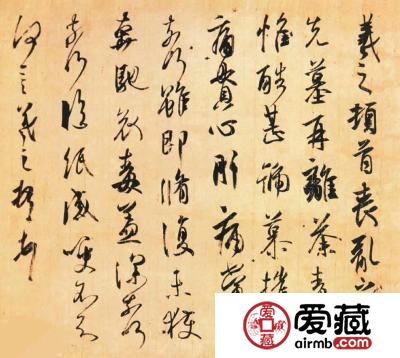 羲之頓首喪亂
先墓再離荼毒
惟酷甚號慕摧
痛貫心肝痛當
奈何雖即脩復未獲
奔馳哀毒益深奈何
奈何臨紙感哽不知
何言羲之頓首
爱藏
airmb.com